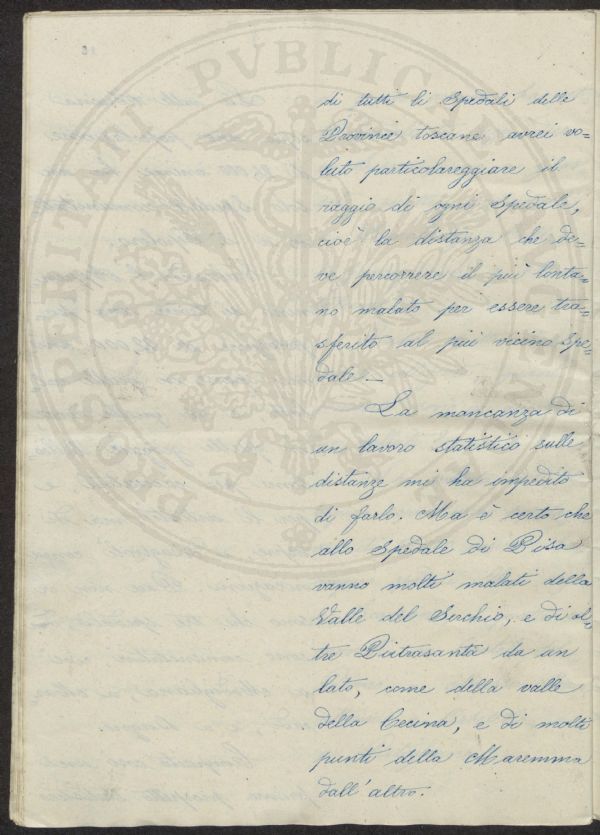 di tutti li Spedali delle
Province toscane avrei vo=
luto particolareggiare il
raggio di ogni Spedale,
cioè la distanza che de=
ve percorrere il più lonta=
no malato per essere tra=
sferito al più vicino Spe=
dale —
La mancanza di
un lavoro statistico sulle
distanze mi ha impedito
di farlo. Ma è certo che
allo Spedale di Pisa
vanno molti malati della
Valle del Serchio, e di ol=
tre Pietrasanta da un
lato, come della valle
della Cecina, e di molti
punti della Maremma
dall'altro.